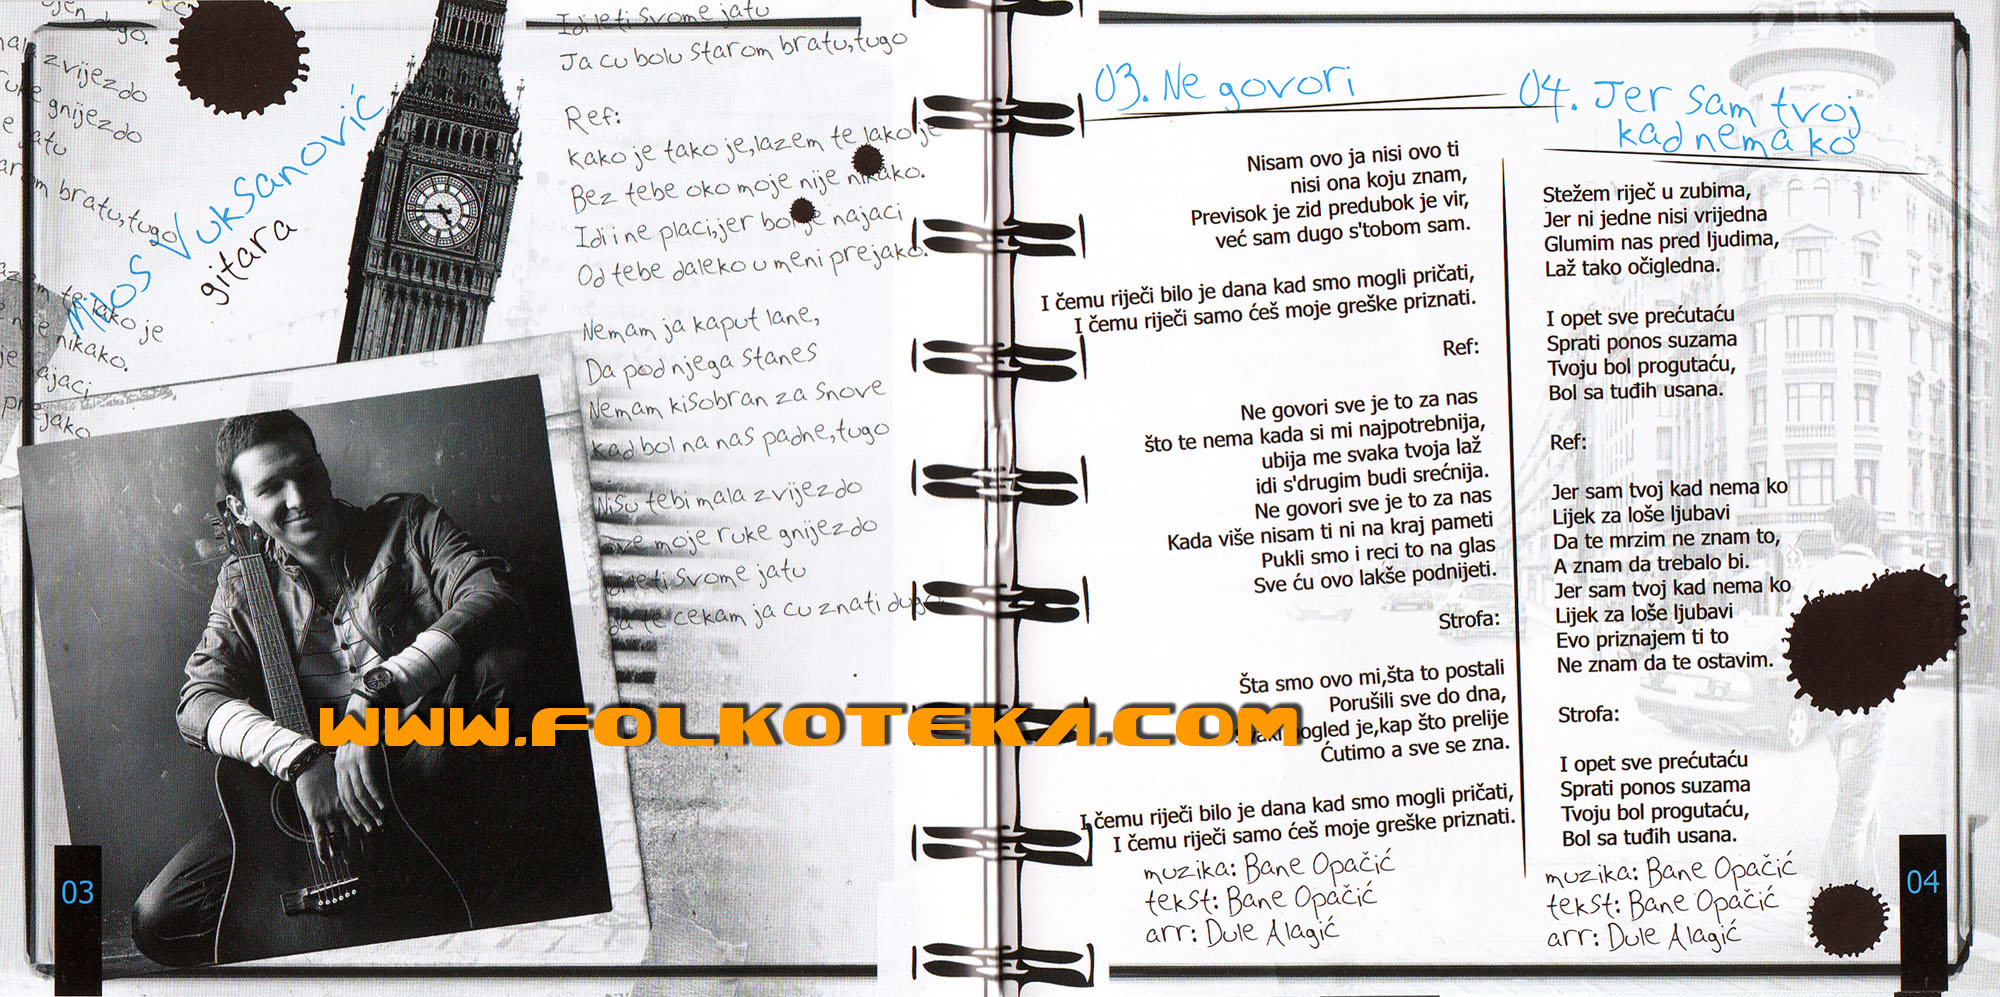 Idi leti svome jatu
Ja cu bolu starom bratu,tugo
Ref:
Kako je tako je,lazem te lako je
Bez tebe oko moje nije nikako.
Idi i ne placi,jer bol je najaci
Od tebe daleko u meni prejako.
Nemam ja kaput lane,
Da pod njega stanes
Nemam kisobran za snove
kad bol na nas padne,tugo
Nisu tebi mala zvijezdo
ove moje ruke gnijezdo
Idi leti svome jatu
Da te cekam ja cu znati dugo
ojen dugo.
mala zvijezdo
ruke gnijezdo
jatu
bratu,tugo
te lako je
nije nikako.
najaci
prejako
Milos Vuksanović
gitara
03
www.FOLKOTEKA.COM
03. Ne govori
Nisam ovo ja nisi ovo ti
nisi ona koju znam,
Previsok je zid predubok je vir,
već sam dugo s'tobom sam.
I čemu riječi bilo je dana kad smo mogli pričati,
I čemu riječi samo ćeš moje greške priznati.
Ref:
Ne govori sve je to za nas
što te nema kada si mi najpotrebnija,
ubija me svaka tvoja laž
idi s'drugim budi srećnija.
Ne govori sve je to za nas
Kada više nisam ti ni na kraj pameti
Pukli smo i reci to na glas
Sve ću ovo lakše podnijeti.
Strofa:
Šta smo ovo mi,šta to postali
Porušili sve do dna,
svaki pogled je,kap što prelije
Ćutimo a sve se zna.
I čemu riječi bilo je dana kad smo mogli pričati,
I čemu riječi samo ćeš moje greške priznati.
muzika: Bane Opačić
tekst: Bane Opačić
arr: Dule Alagić
04. Jer sam tvoj
kad nema ko
Stežem riječ u zubima,
Jer ni jedne nisi vrijedna
Glumim nas pred ljudima,
Laž tako očigledna.
I opet sve prećutaću
Sprati ponos suzama
Tvoju bol progutaću,
Bol sa tuđih usana.
Ref:
Jer sam tvoj kad nema ko
Lijek za loše ljubavi
Da te mrzim ne znam to,
A znam da trebalo bi.
Jer sam tvoj kad nema ko
Lijek za loše ljubavi
Evo priznajem ti to
Ne znam da te ostavim.
Strofa:
I opet sve prećutaću
Sprati ponos suzama
Tvoju bol progutaću,
Bol sa tuđih usana.
muzika: Bane Opačić
tekst: Bane Opačić
arr: Dule Alagić
04